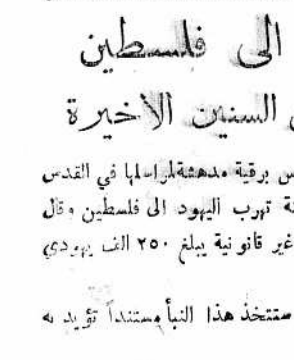 الى فلسطين
السنين الاخيرة
برقية مدهشة لمراسلها في القدس
تهرب اليهود الى فلسطين وقال
غير قانونية يبلغ ٢٥٠ الف يهودي
ستتخذ هذا النبأ مستنداً تؤيد به